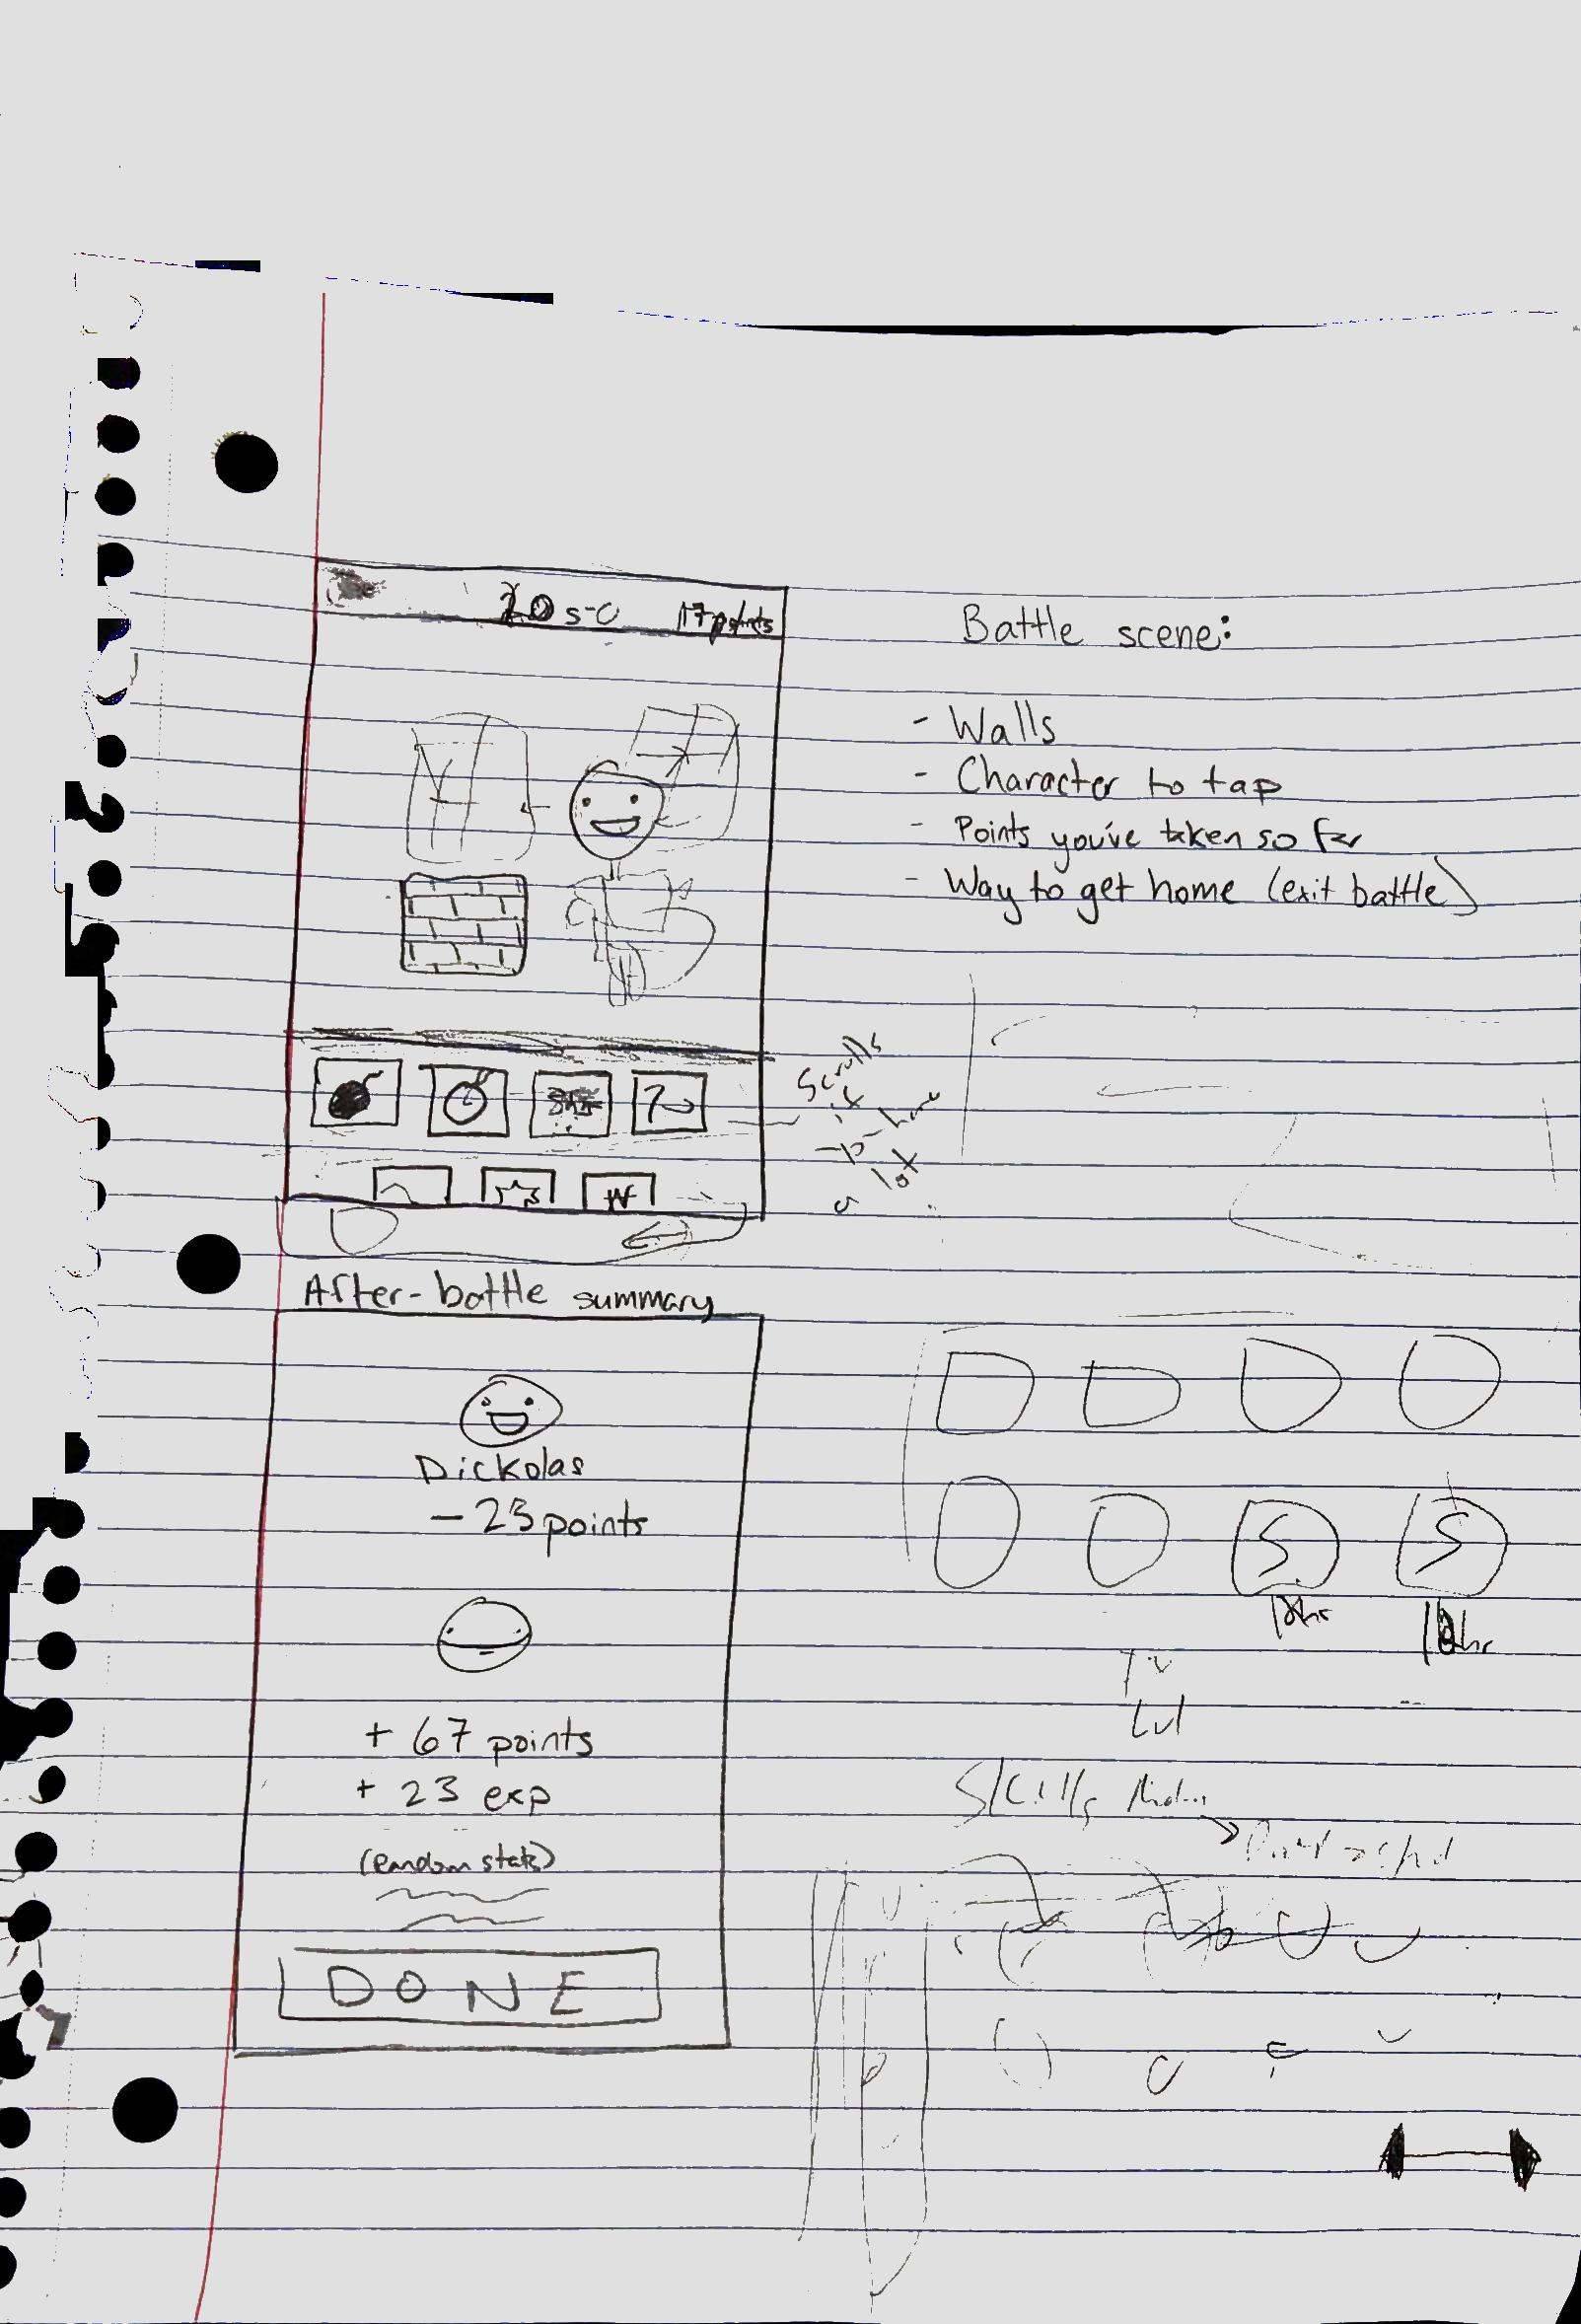 20 sec 17 points
Battle scene:
- Walls
- Character to tap
- Points you've taken so far
- Way to get home (exit battle)
Scrolls
if
a lot
After-battle summary
Dickolas
- 23 points
+ 67 points
+ 23 exp
(random stats)
DONE
S S
Lvl
Skills